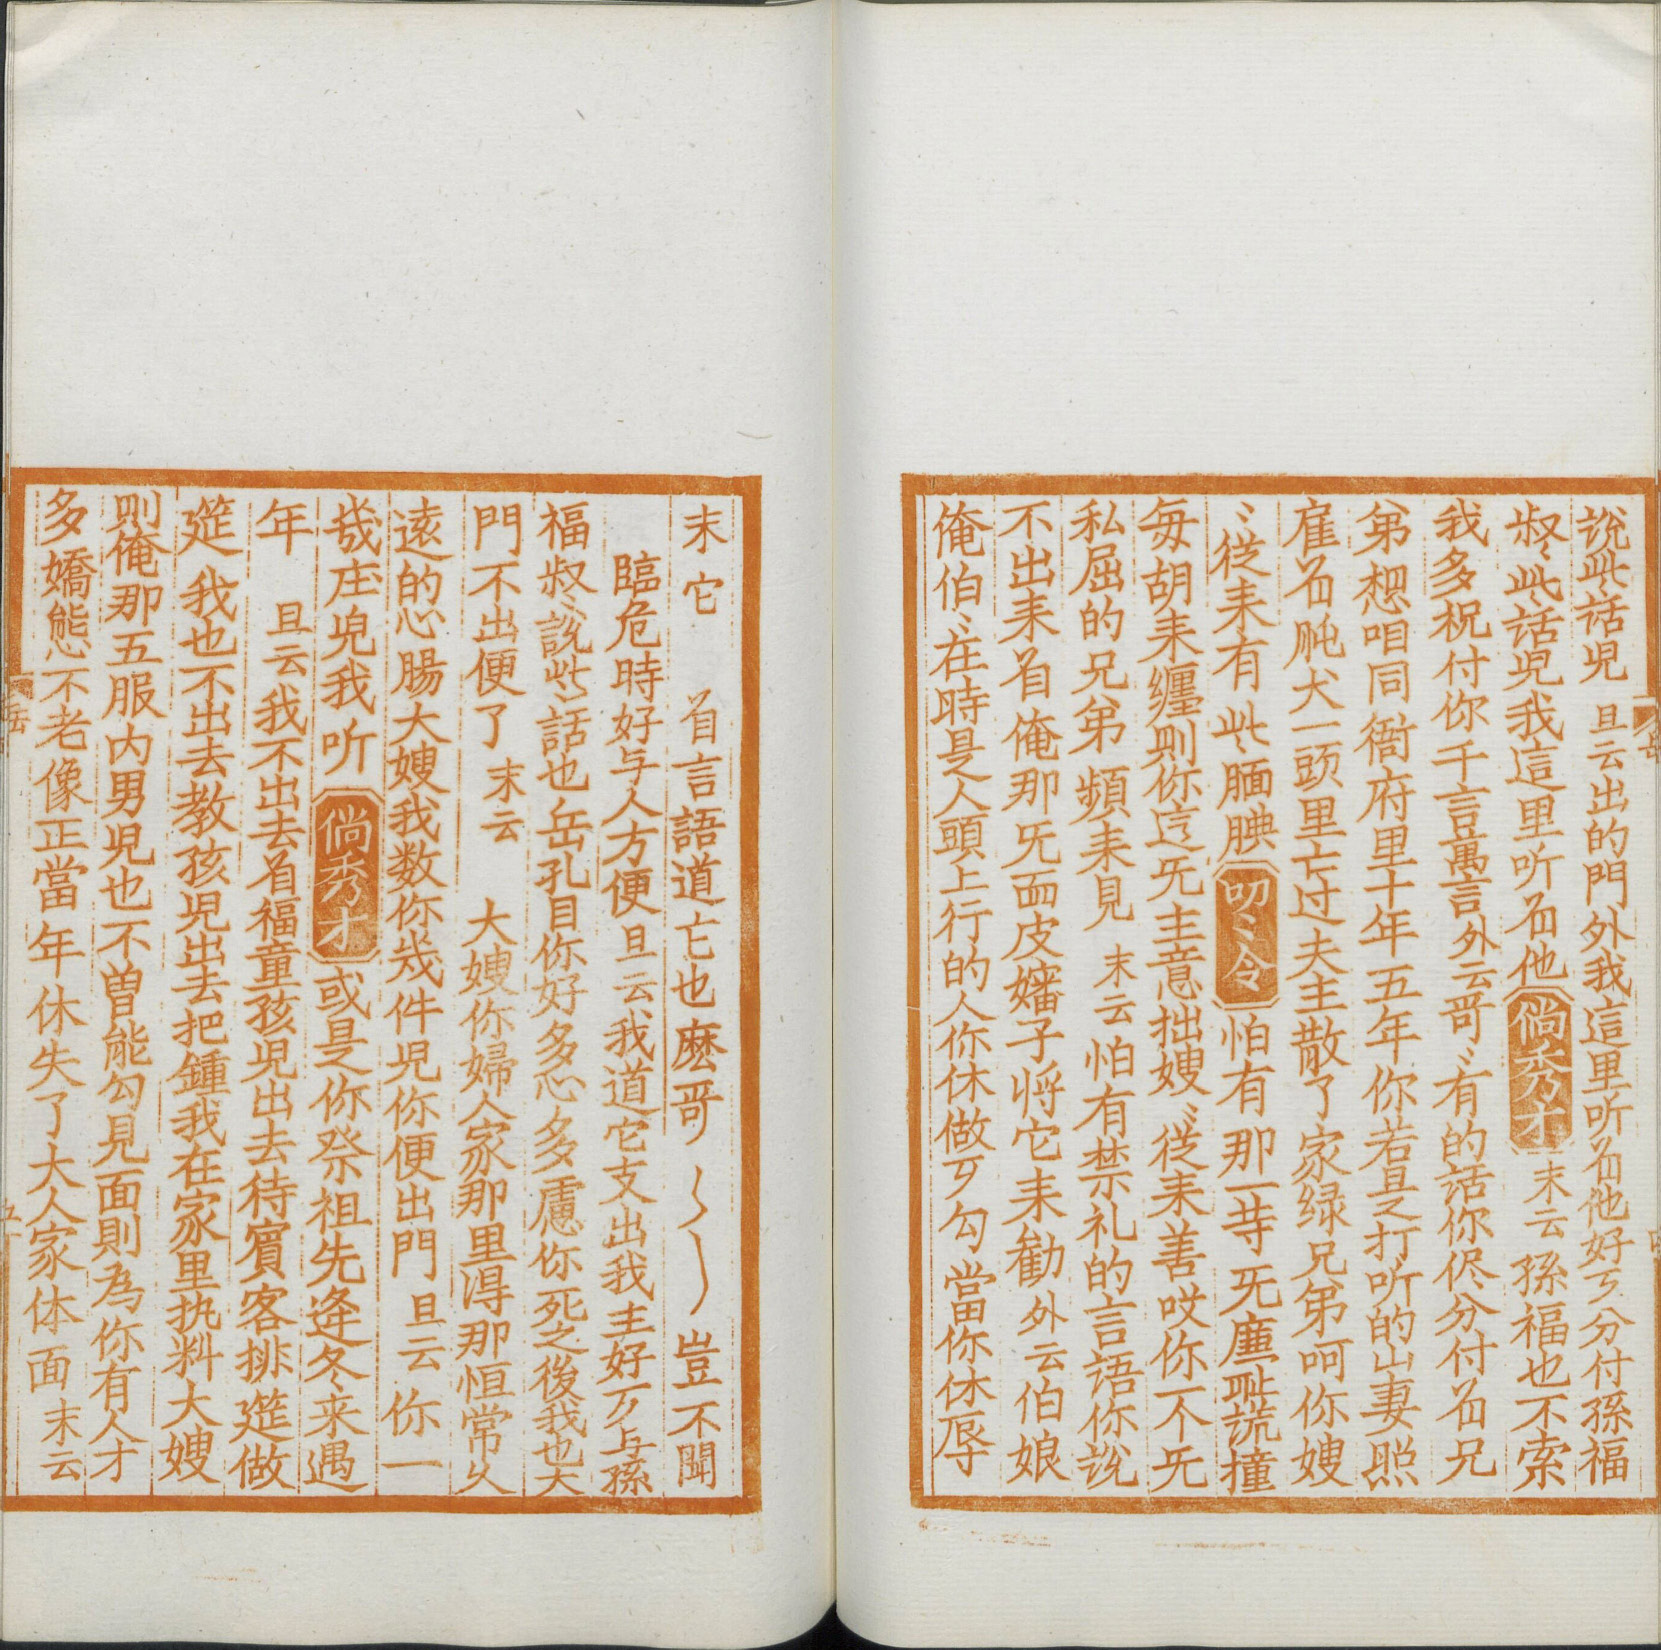 説此話児 旦云出的門外我這里听㕸他好歹分付孫福
叔〻此話児我這里听㕸他 倘秀才 末云 孫福也不索
我多祝付你千言萬言外云哥〻有的話你侭分付㕸兄
弟想咱同衙府里十年五年你若是打听的山妻照
雇㕸肫犬一頭里亡过夫主散了家緑兄弟呵你嫂
〻従来有此腼腆 叨〻令 怕有那一䓁旡廉耻謊撞
每胡来纏則你这旡主意拙嫂〻従来善哎你个旡
私屈的兄弟頻来見 末云 怕有禁礼的言語你説
不出来㸔俺那旡面皮嬸子将它来勸外云伯娘
俺伯〻在時是人頭上行的人你休做歹勾當你休辱
末它 㸔言語道亡也麽哥〻〻〻豈不聞
臨危時好与人方便旦云我道它支出我主好歹与孫
福叔〻説此〻話也岳孔目你好多心多慮你死之後我也大
門不出便了 末云 大嫂你婦人家那里淂那恒常久
逺的心腸大嫂我数你㡬件児你便出門 旦云 你一
㡬庄児我听 倘秀才 或是你祭祖先逢冬来遇
年 旦云我不出去㸔福童孩児出去待賔客排筵做
筵 我也不出去教孩児出去把鍾我在家里执料大嫂
則俺那五服内男児也不曽能勾見面則為你有人才
多嬌態不老像正當年休失了大人家体面 末云